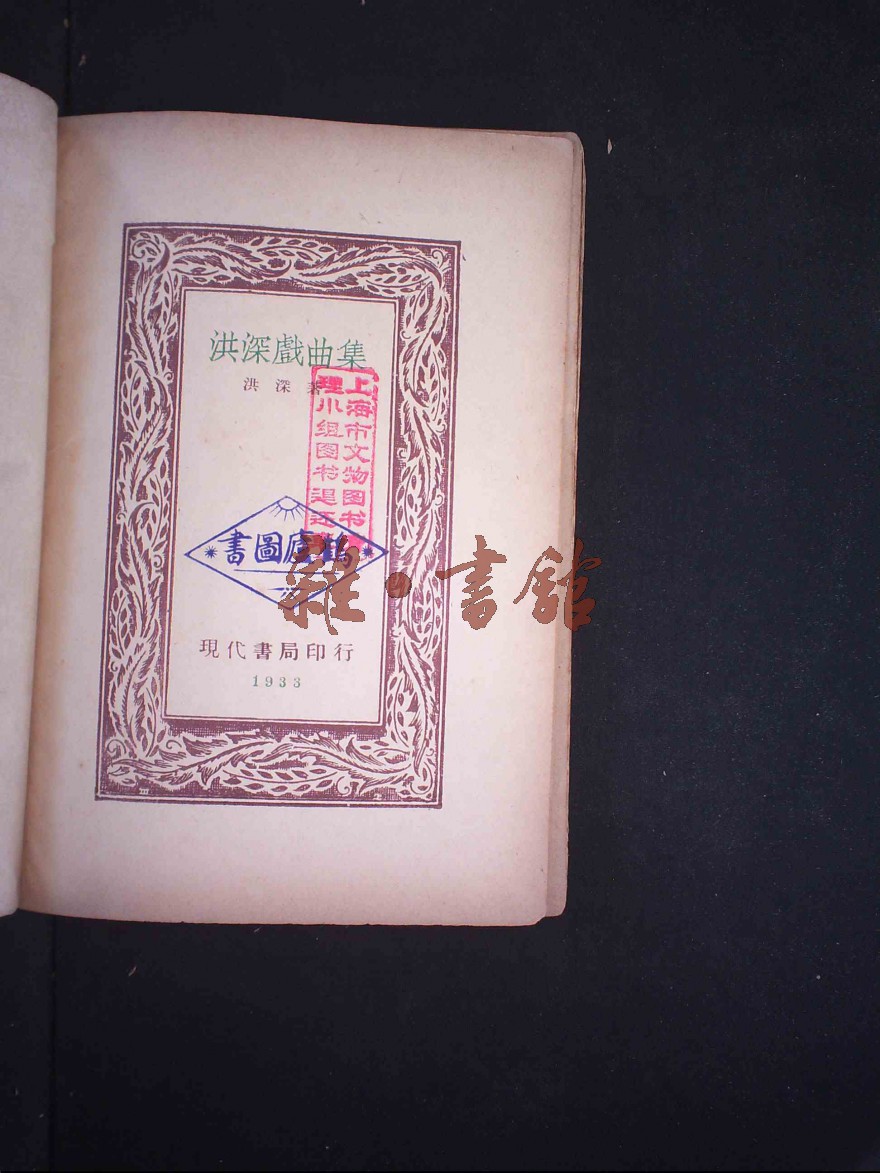 洪深戲曲集
洪深著
上海市文物图书
理小组图书退还
鶴廬圖書
雜·書館
現代書局印行
1933